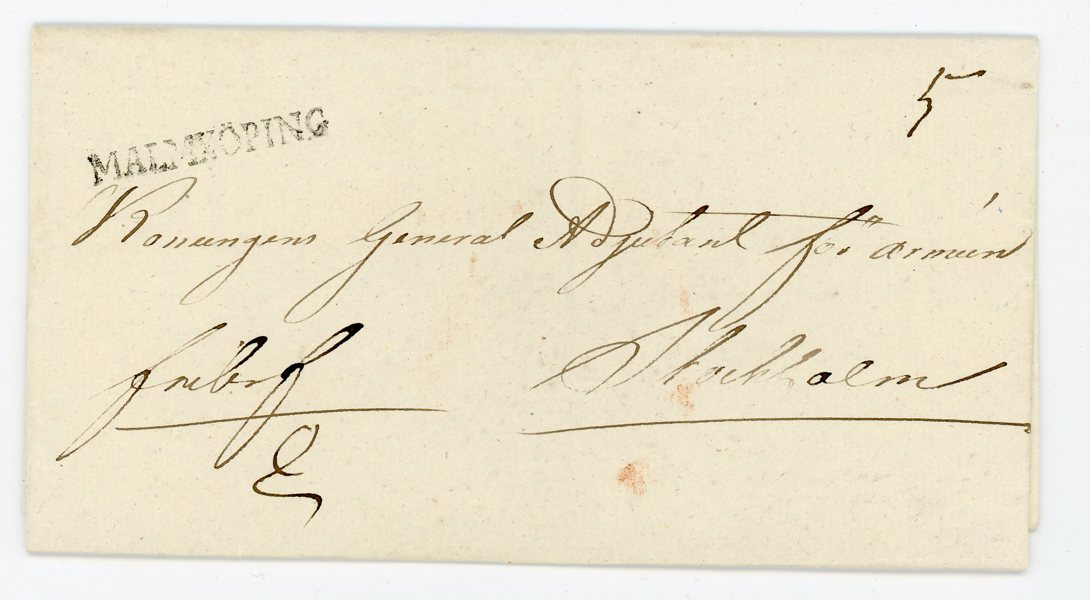 5
MALMKÖPING
Konungens General Adjutant för armeén
fribref
Stockholm